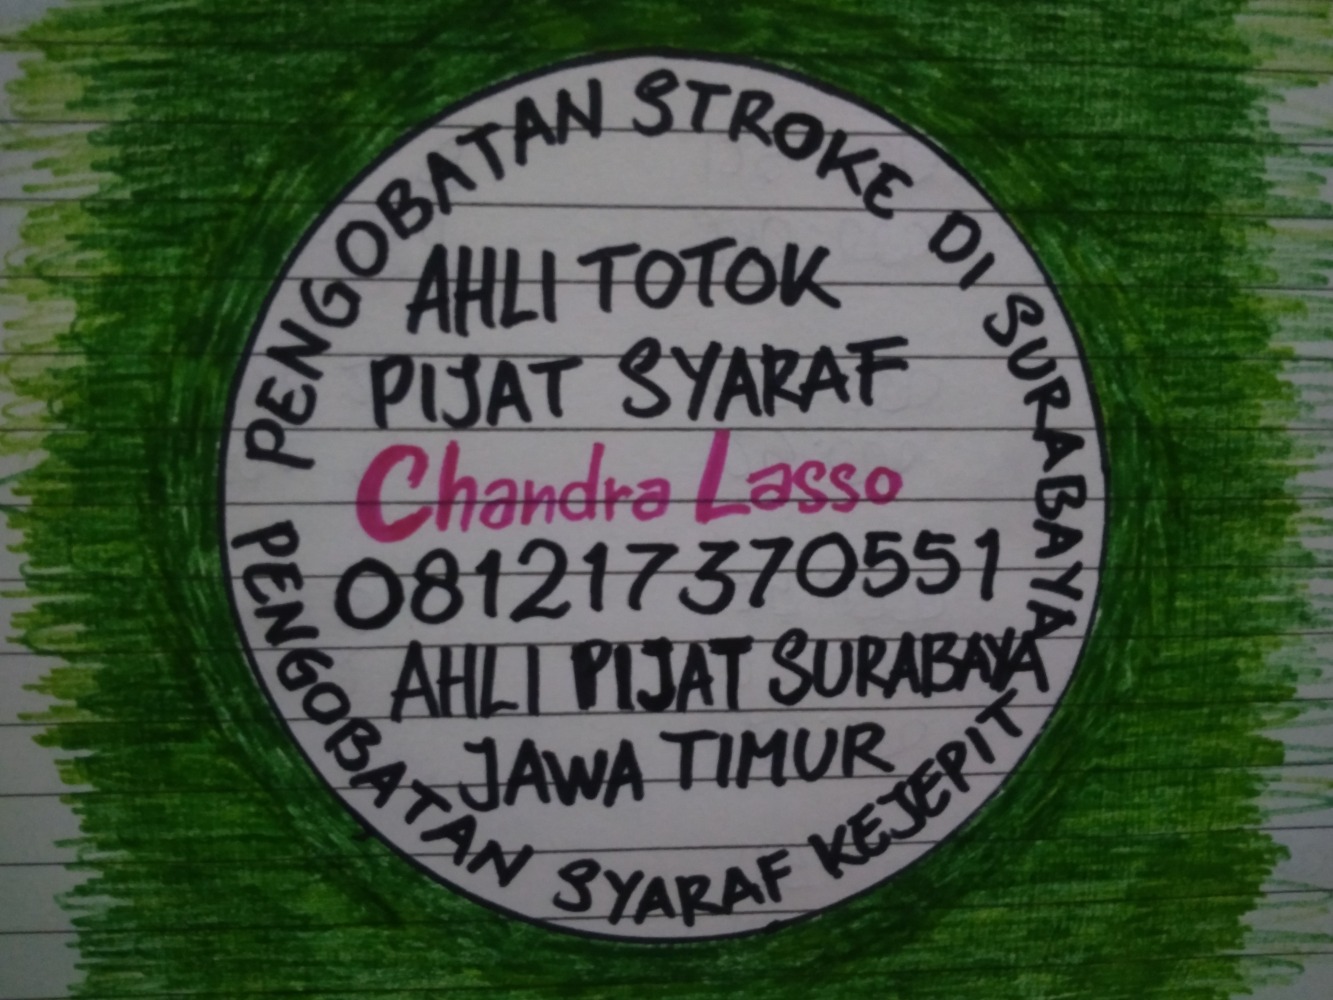 PENGOBATAN STROKE DI SURABAYA
AHLI TOTOK
PIJAT SYARAF
Chandra Lasso
081217370551
AHLI PIJAT SURABAYA
JAWA TIMUR
PENGOBATAN SYARAF KEJEPIT